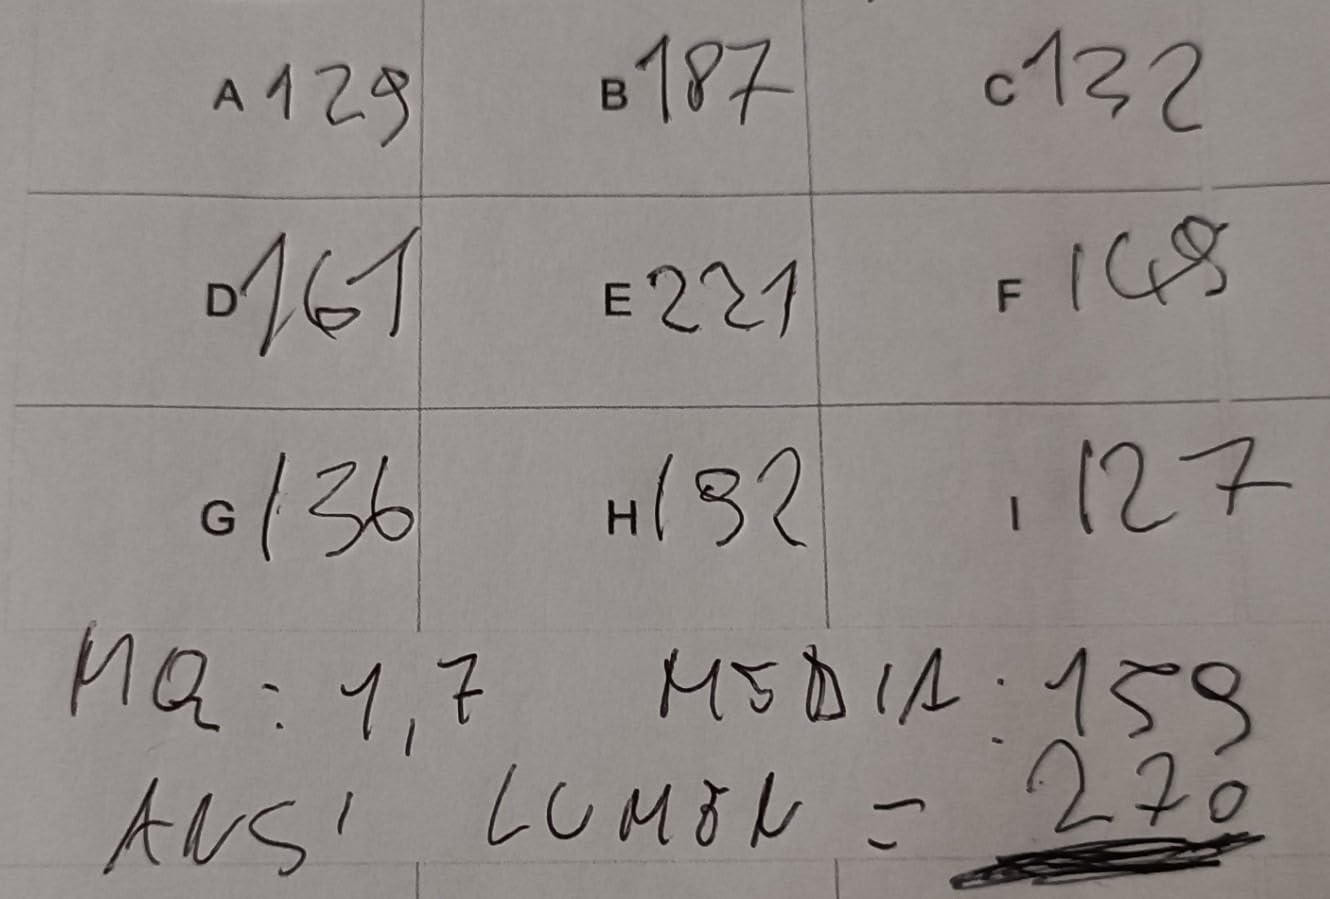 A 129 B 187 C 132
D 161 E 221 F 149
G 136 H 192 I 127
MQ: 1,7 MEDIA: 159
ANSI LUMEN = 270